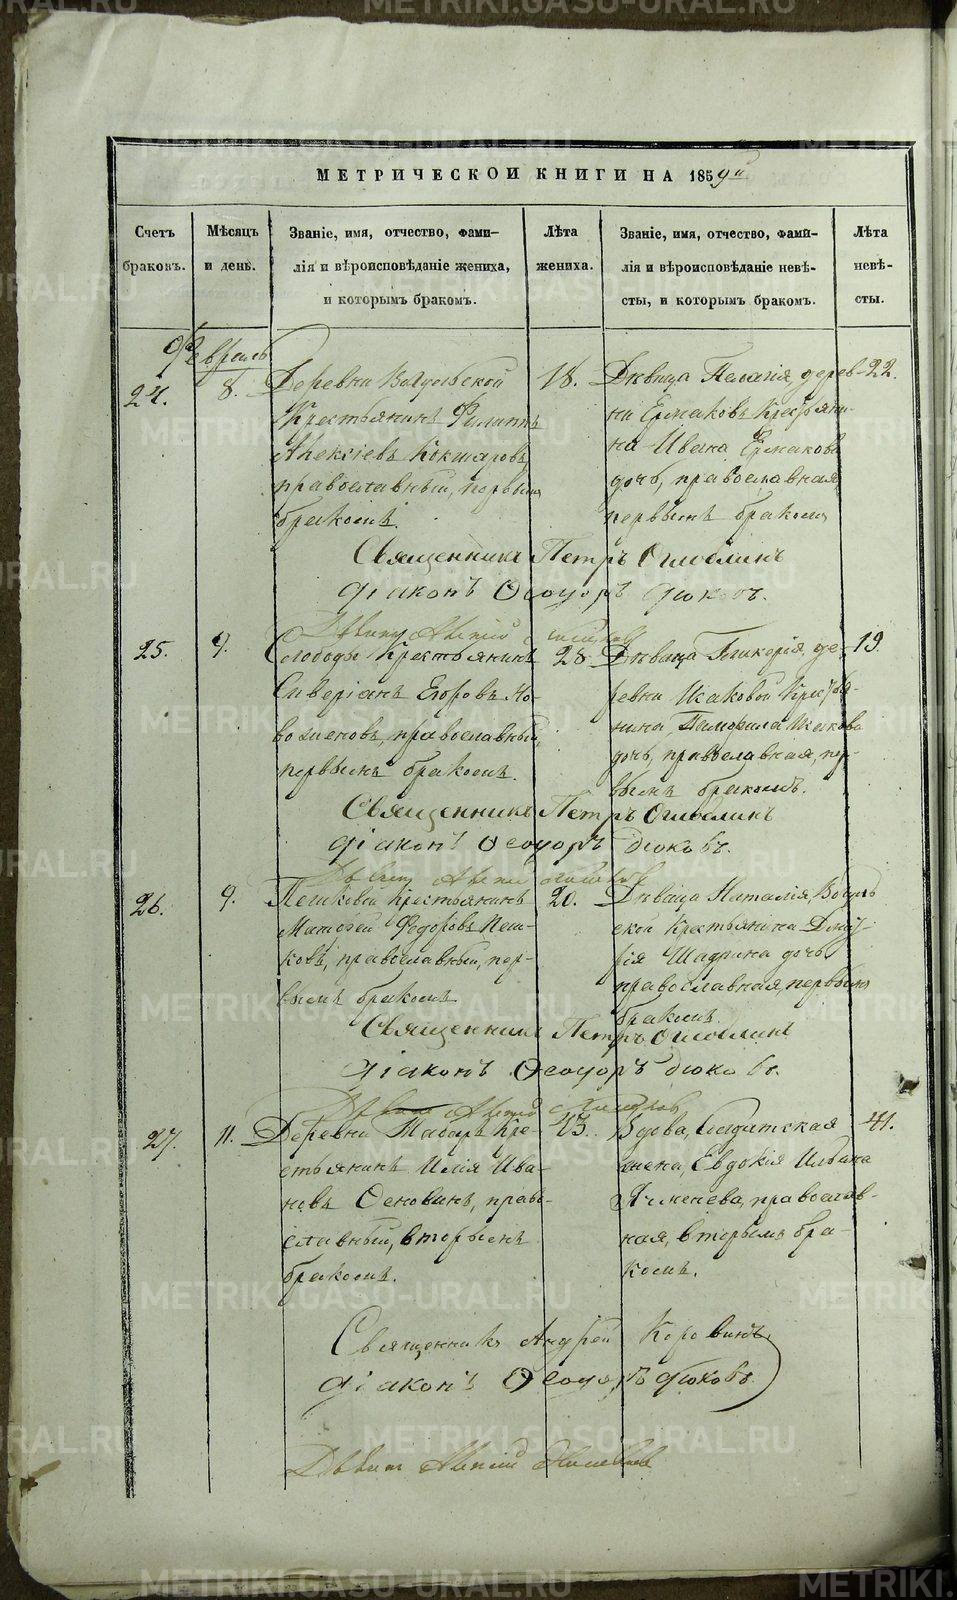 METRIKI.GASO-URAL.RU
МЕТРИЧЕСКОЙ КНИГИ НА 1859й
Счетъ браковъ.
Мѣсяцъ и день.
Званіе, имя, отчество, фами-
лія и вѣроисповѣданіе жениха,
и которымъ бракомъ.
Лѣта жениха.
Званіе, имя, отчество, фами-
лія и вѣроисповѣданіе невѣ-
сты, и которымъ бракомъ.
Лѣта невѣ-
сты.
Февраль
24. 8.
Деревни
Крестьянинъ Филиппъ
Алексѣевъ Кокшаровъ,
православный, первымъ
бракомъ.
18.
Дѣвица Пелагія, дерев-
ни Ермаковъ Крестьяни-
на Ивана Ермакова
дочь, православная,
первымъ бракомъ
22.
Священникъ Петръ Оглоблинъ
Діаконъ Ѳеодоръ Дюковъ.
25. 9.
Слободы Крестьянинъ
Сиверіанъ Егоровъ Но-
воженовъ, православный,
первымъ бракомъ.
28.
Дѣвица Гликерія, де-
ревни Исаковой Кресть-
янина Исакова
дочь, православная, пер-
вымъ бракомъ.
19.
Священникъ Петръ Оглоблинъ
Діаконъ Ѳеодоръ Дюковъ.
26. 9.
Пешковой Крестьянинъ
Матѳей Федоровъ Пеш-
ковъ, православный, пер-
вымъ бракомъ
20.
Дѣвица Наталія,
Крестьянина Дмит-
рія Шадрина дочь,
православная, первымъ
бракомъ.
Священникъ Петръ Оглоблинъ
Діаконъ Ѳеодоръ Дюковъ.
27. 11.
Деревни Таборъ Кре-
стьянинъ Илія Ива-
новъ Осповинъ, право-
славный, вторымъ
бракомъ.
43.
Вдова, Солдатская
жена, Евдокія Ильина
Ячменева, православ-
ная, вторымъ бра-
комъ.
41.
Священникъ Андрей Коровинъ
Діаконъ Ѳеодоръ Дюковъ.